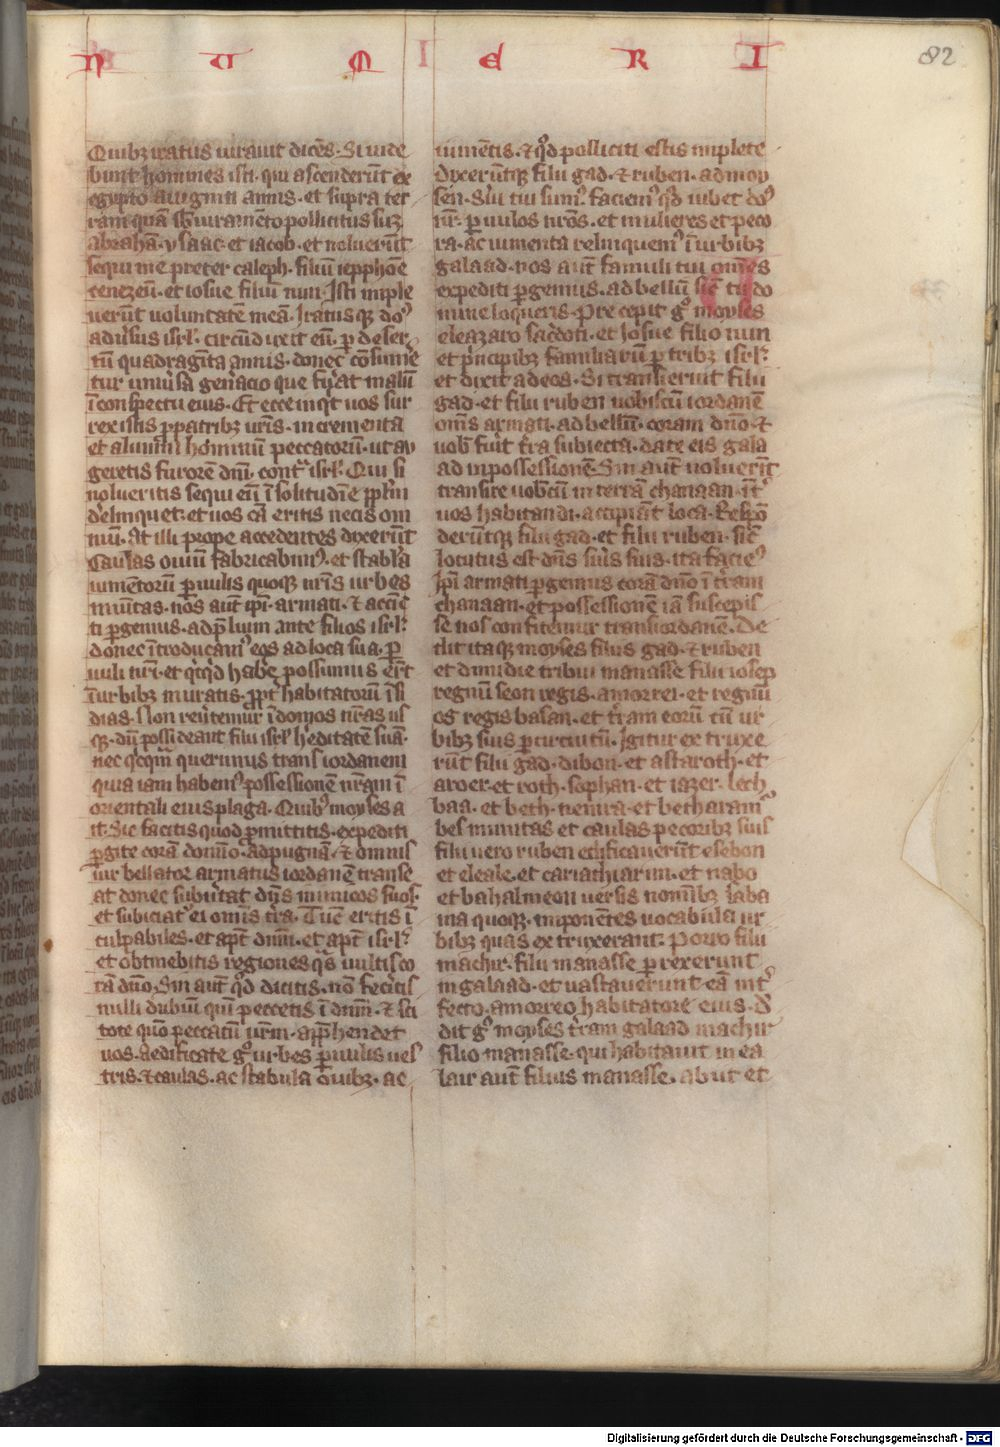 N U M E R I
82
Quibꝫ iratus iurauit dicēs · Si uide
bunt homines isti · qui ascenderūt ex
egypto a uiginti annis · et supra ter
ram quā sb iuramēto pollicitus suꝫ
abrahā · ysaac · et iacob · et noluerūt
sequi me preter caleph · filiū iepphōe
cenezeū · et iosue filiū nun · Isti imple
uerūt voluntatē meā · Iratus qꝫ do᷒
aduʼsus isrl · circūduxit eū · ꝑ deser
tū quadragīta annis · donec cōsume
tur uniuʼsa genʼacio que fuʼat malū
ī conspectu eius · Et ecce inqͥt uos sur
rexistis ꝓ patribꝫ uʼris · incrementa
et alumni hominū peccatorū · ut au
geretis furorē dn̄i · contʼ isrl · Qui si
nolueritis sequi eū ī solitudīe pplʼm
dʼelinquet · et uos cā eritis necis om
niū · At illi prope accedentes dixerūt
Caulas ouiū fabricabim᷒ · et stabla
iumentorū ꝑuulis quoqꝫ nr̄is urbes
munitas · nos aūt ip̄i · armati · ⁊ accīc
ti ꝑgemus · ad p̄lium ante filios isrl
donec ītroducam᷒ eos ad loca sua · ꝑ
uuli nr̄i · et qͥcqͥd habʼe possumus erūt
ī urbibꝫ muratis · ꝓpt habitatorū īsi
dias · Non reuʼtemur ī domos nr̄as us
qꝫ · dū possideant filii isrl hʼeditatē suā ·
nec qͥcqͣm querimus trans iordanem
quia iam habem᷒ possessionē nr̄am ī
orientali eius plaga · Quibꝰ moyses a
it · Sic facitis quod ꝓmittitis · expediti
ꝑgite corā domīo · ad pugnā · ⁊ omnis
uir bellator armatus iordanē transe
at donec subuʼtat dn̄s inimicos suos ·
et subiciatʼ ei omīs tʼra · Tūc eritis ī
culpabiles · et apt̄ dnm̄ · et apt̄ isrl
et obtinebitis regiones qͣs uultis co
rā dn̄o · Sin aūt qͦd dicitis · nō fecitis
nulli dubiū qui peccetis ī dnm̄ · ⁊ sci
tote quō peccatū ur̄m · app̄hendet
uos · Aedificate gͦ urbes ꝑuulis ues
tris · ⁊ caulas · ac stabula ouibꝫ · ac
iumētis · ⁊ qͦd polliciti estis implete
dixerūtqꝫ filii gad · ⁊ ruben · ad moy
sen · Sʼui tui sum᷒ · faciem᷒ qͦd iubet do᷒
nr̄ · ꝑuulos nr̄os · et mulieres et peco
ra · ac iumenta relinquem᷒ ī urbibꝫ
galaad · nos aūt famuli tui omēs
expediti ꝑgemus · ad bellū sic̄ tu do
mine loqueris · Precepit gͦ moyses
eleazaro sac̄doti · et Iosue filio nun
et pͥncipibꝫ familiarū ꝑ tribꝫ isrl
et dixit ad eos · Si transierint filii
gad · et filii ruben uobiscū iordanē
omīs armati · ad bellū · coram dn̄o · ⁊
uob̄ fuʼit tʼra subiecta · date eis gala
ad in possessionē Sin aūt noluerīt
transire uob̄cū in terrā chanaan · īt᷒
uos habitandi · accipiāt loca · Respō
derūtqꝫ filii gad · et filii ruben · sic̄
locutus est dn̄s suʼis suis · ita faciem᷒
ip̄i armati ꝑgemus corā dn̄o ī tʼram
chanaan · et possessionē iā suscepis
se nos confitemur trans iordanē · De
dit itaqꝫ moyses filiis gad · ⁊ ruben
et dimidie tribui manasse filii iosep
regnū seon regis · amorrei · et regnū
og regis basan · et tʼram eorū cū ur
bibꝫ suis ꝑ circuitū · Igitur extruxe
rūt filii gad · dibon · et astaroth · et
aroer · et roth · sophan · et iazer · lech
baa · et beth · nemra · et betharam ·
bes munitas et caulas pecoribꝫ suis
filii uero ruben edificauerūt esebon
et eleale · et cariathiarim · et nabo
et bahalmeon uersis nomībꝫ Saba
ma quoqꝫ · imponētes uocabula ur
bibꝫ quas extruxerant · Porro filii
machir · filii manasse ꝑrexerunt
in galaad · et uastauerunt eā int᷒
fecto · amorreo habitatore eius · d̄
dit gͦ moyses tʼram galaad machir
filio manasse · qui habitauit in ea
Iair aūt filius manasse · abiit et
Digitalisierung gefördert durch die Deutsche Forschungsgemeinschaft - DFG